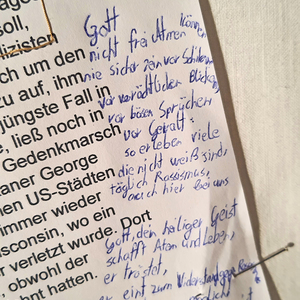 soll,
lizisten
ch um den
zu auf, ihm
jüngste Fall in
e, ließ noch in
Gedenkmarsch
aner George
en US-Städten
immer wieder
isconsin, wo ein
r verletzt wurde. Dort
, obwohl der
hnt hatten.
Gott
nicht frei atmen können
nie sicher sein vor Schikanen
vor verächtlichen Blicken
vor bösen Sprüchen
vor Gewalt:
so erleben viele
die nicht weiß sind,
täglich Rassismus,
auch hier bei uns
Gott, dein heiliger Geist
schafft Atem und Leben,
er tröstet,
er eint zum